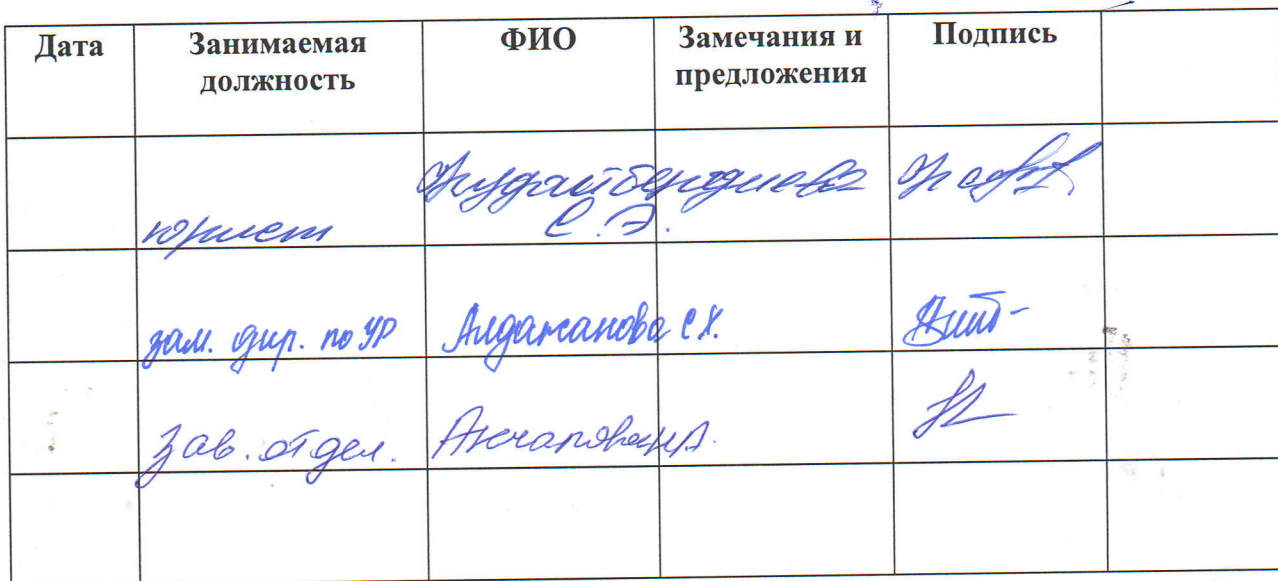 Дата Занимаемая должность ФИО Замечания и предложения Подпись
юрист Худайбердиева С.Э.
зам. дир. по УР Алдажанова С.Х.
Зав. отдел.